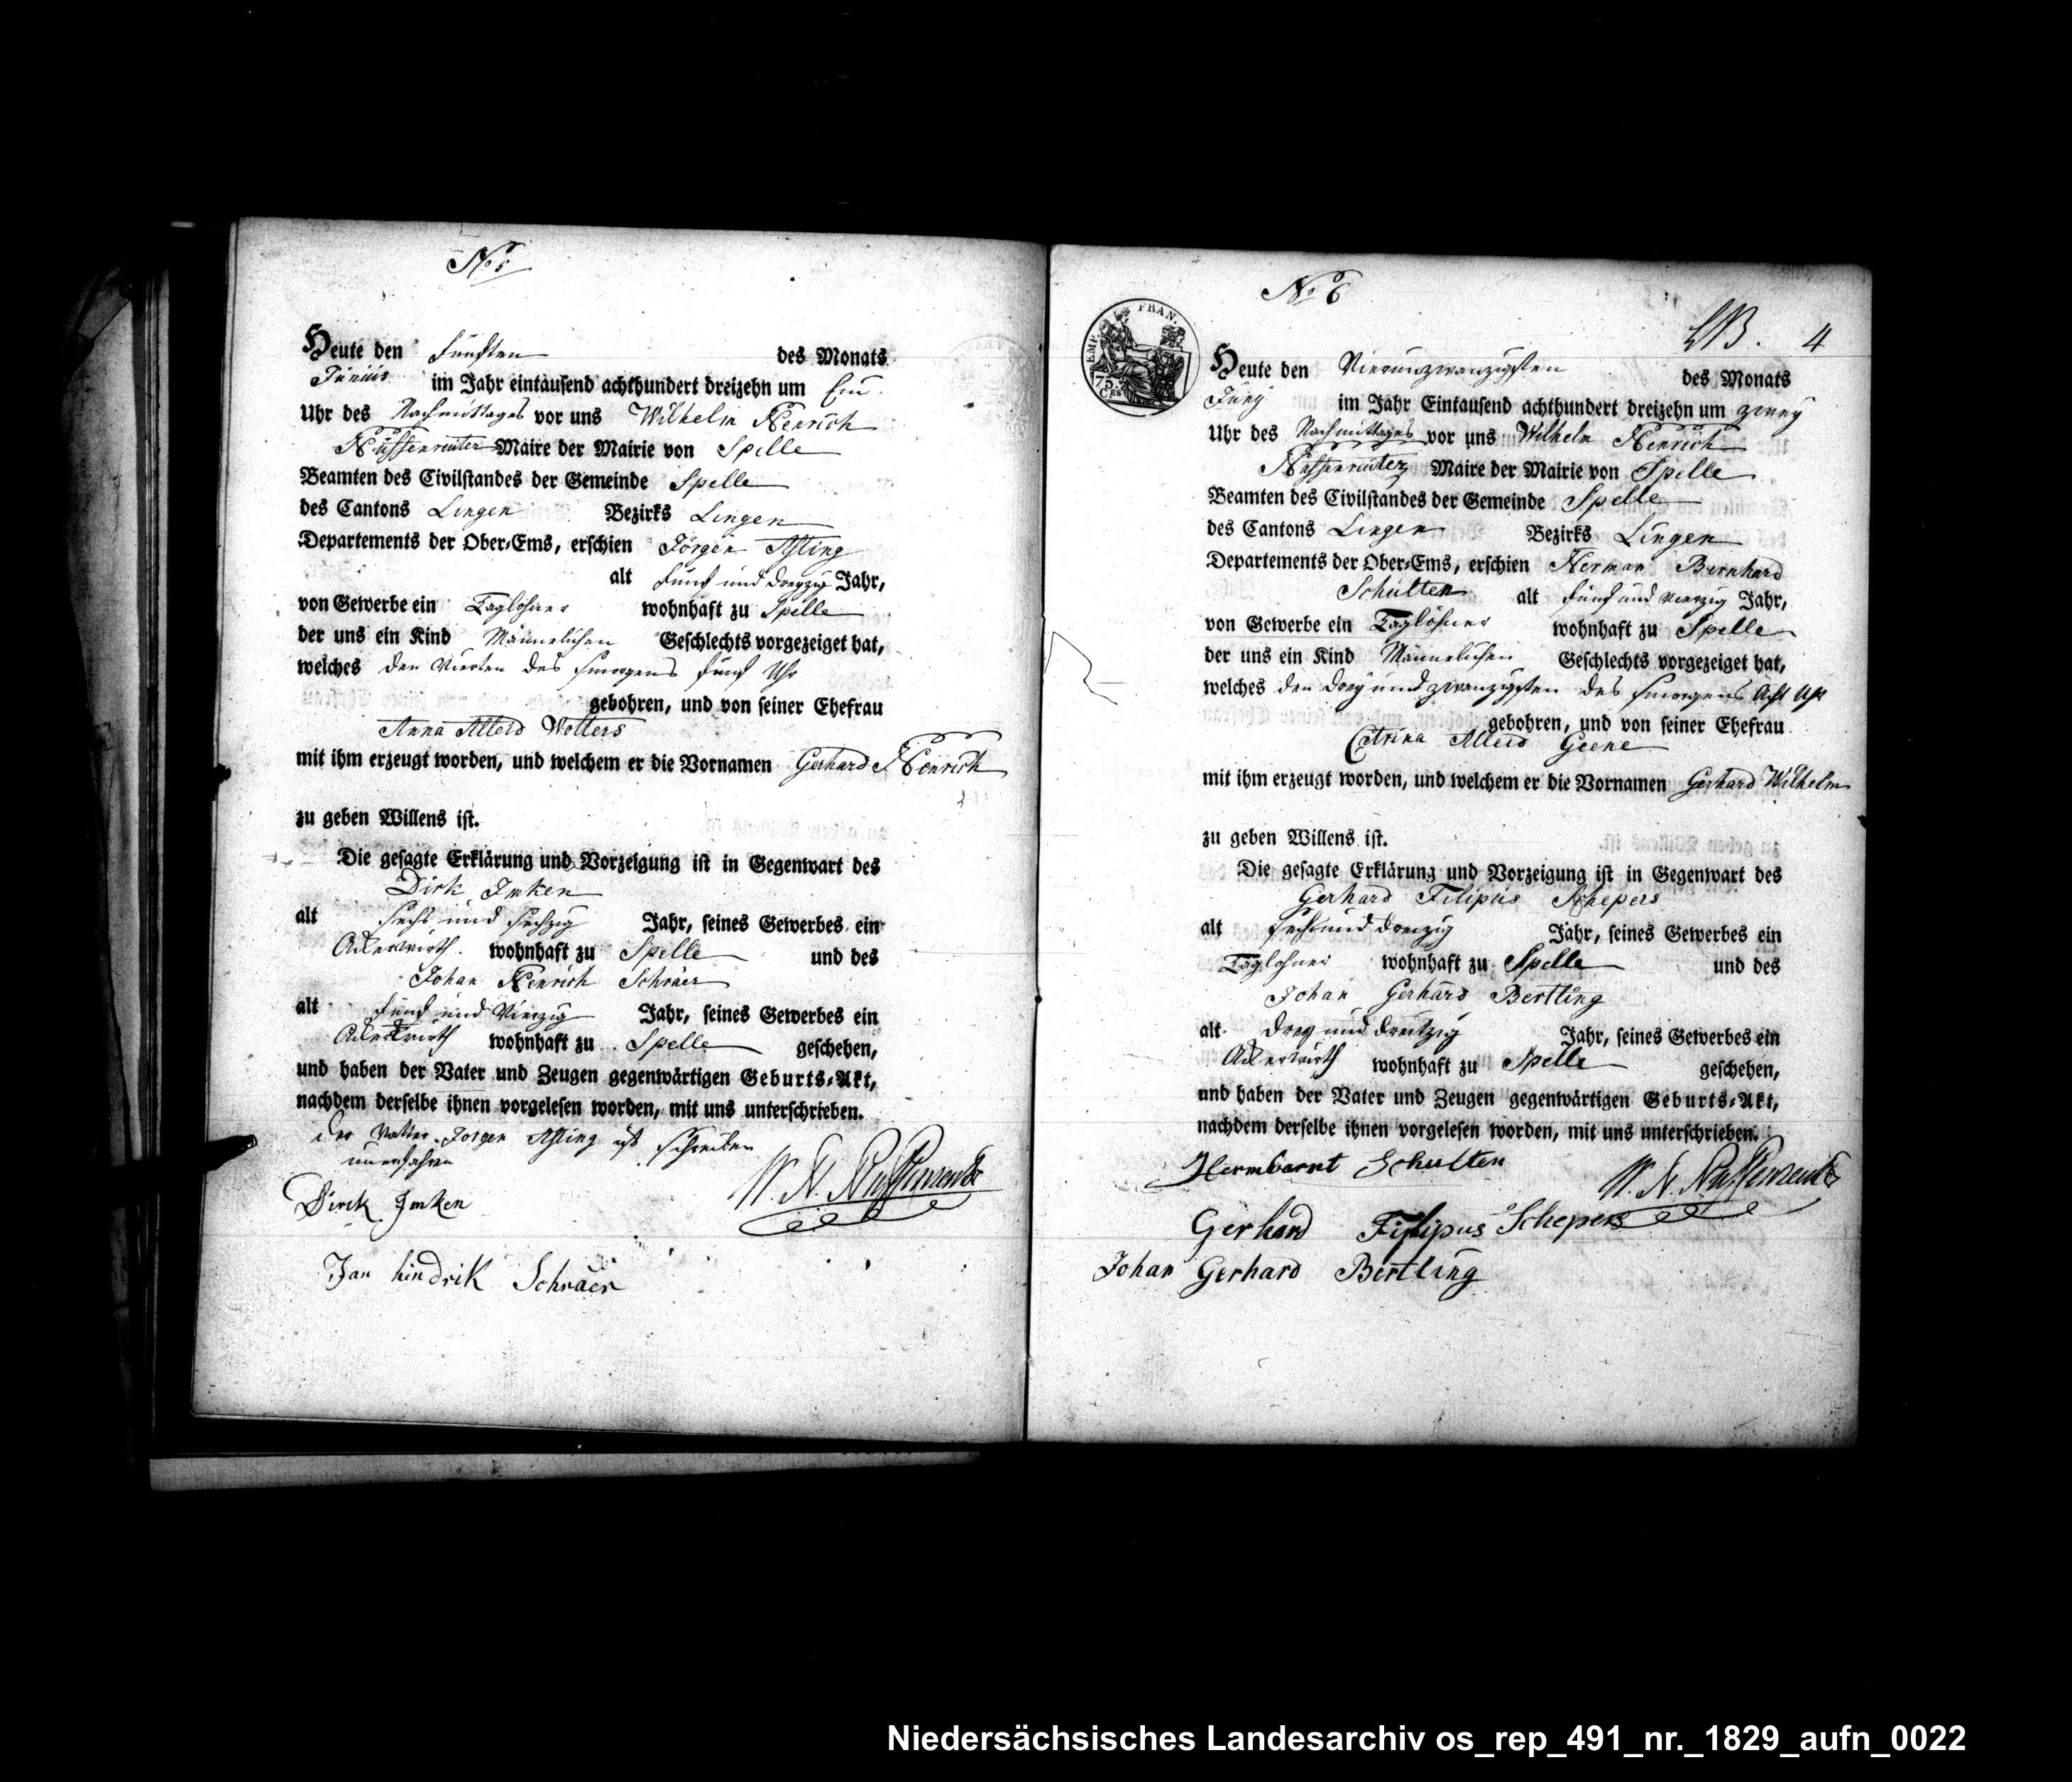 No 5
Heute den fünften des Monats
Junius im Jahr eintausend achthundert dreizehn um Ein
Uhr des Nachmittages vor uns Wilhelm Henrich
Nussenreuter Maire der Mairie von Spelle
Beamten des Civilstandes der Gemeinde Spelle
des Cantons Lingen Bezirks Lingen
Departements der Ober-Ems, erschien Jörgen
alt fünf und dreyzig Jahr,
von Gewerbe ein Taglöhner wohnhaft zu Spelle
der uns ein Kind Männlichen Geschlechts vorgezeiget hat,
welches den Vierten des morgens fünf Uhr
gebohren, und von seiner Ehefrau
Anna Alleid Wolters
mit ihm erzeugt worden, und welchem er die Vornamen Gerhard Henrich
zu geben Willens ist.
Die gesagte Erklärung und Vorzeigung ist in Gegenwart des
Dirk Imken
alt sechs und sechzig Jahr, seines Gewerbes ein
Ackerwirth. wohnhaft zu Spelle und des
Johan Henrich Schräer
alt fünf und Vierzig Jahr, seines Gewerbes ein
Ackerwirth wohnhaft zu Spelle geschehen,
und haben der Vater und Zeugen gegenwärtigen Geburts-Akt,
nachdem derselbe ihnen vorgelesen worden, mit uns unterschrieben.
der Vatter Jorgen ist schreiben
unerfahren
Dirck Imken
Jan hindrik Schräer
No 6
4
EMP. FRAN.
75. CES
Heute den Vierunzwanzigsten des Monats
Juny im Jahr Eintausend achthundert dreizehn um zwey
Uhr des Nachmittages vor uns Wilhelm Henrich
Nussenreuter Maire der Mairie von Spelle
Beamten des Civilstandes der Gemeinde Spelle
des Cantons Lingen Bezirks Lingen
Departements der Ober-Ems, erschien Herman Bernhard
Schulten alt fünf und vierzig Jahr,
von Gewerbe ein Taglöhner wohnhaft zu Spelle
der uns ein Kind Männlichen Geschlechts vorgezeiget hat,
welches den drey und zwanzigsten des morgens Acht Uhr
gebohren, und von seiner Ehefrau
Catrina Alleid Geene
mit ihm erzeugt worden, und welchem er die Vornamen Gerhard Wilhelm
zu geben Willens ist.
Die gesagte Erklärung und Vorzeigung ist in Gegenwart des
Gerhard Filipus Schepers
alt sechs und dreizig Jahr, seines Gewerbes ein
Taglohner wohnhaft zu Spelle und des
Johan Gerhard Bertling
alt drey und dreitzig Jahr, seines Gewerbes ein
Ackerwirth wohnhaft zu Spelle geschehen,
und haben der Vater und Zeugen gegenwärtigen Geburts-Akt,
nachdem derselbe ihnen vorgelesen worden, mit uns unterschrieben.
Hermbarnt Schulten
Gerhard Filipus Schepers
Johan Gerhard Bertling
Niedersächsisches Landesarchiv os_rep_491_nr._1829_aufn_0022